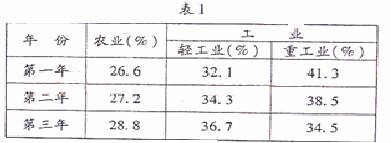 表1
年 份 农业(%) 工 业
轻工业(%) 重工业(%)
第一年 26.6 32.1 41.3
第二年 27.2 34.3 38.5
第三年 28.8 36.7 34.5